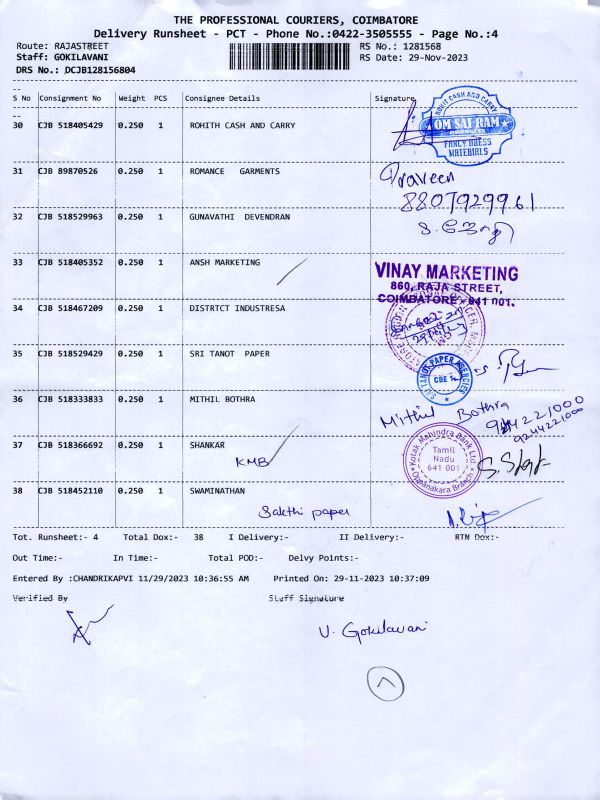 THE PROFESSIONAL COURIERS, COIMBATORE
Delivery Runsheet - PCT - Phone No.:0422-3505555 - Page No.:4
Route: RAJASTREET RS No.: 1281568
Staff: GOKILAVANI RS Date: 29-Nov-2023
DRS No.: DCJB128156804
S No Consignment No Weight PCS Consignee Details Signature
30 CJB 518405429 0.250 1 ROHITH CASH AND CARRY
ROHIT CASH AND CARRY
OM SAI RAM
PRODUCTS
FANCY DRESS
MATERIALS
31 CJB 89870526 0.250 1 ROMANCE GARMENTS
Praveen
8807929961
32 CJB 518529963 0.250 1 GUNAVATHI DEVENDRAN
33 CJB 518405352 0.250 1 ANSH MARKETING
VINAY MARKETING
860, RAJA STREET,
COIMBATORE - 641 001.
34 CJB 518467209 0.250 1 DISTRTCT INDUSTRESA
35 CJB 518529429 0.250 1 SRI TANOT PAPER
SRI TANOT PAPER AGENCIES
CBE
36 CJB 518333833 0.250 1 MITHIL BOTHRA
Mithil Bothra
9244221000
37 CJB 518366692 0.250 1 SHANKAR
KMB
Kotak Mahindra Bank Ltd
Tamil
Nadu
641 001
Oppanakara Branch
38 CJB 518452110 0.250 1 SWAMINATHAN
Sakthi paper
Tot. Runsheet:- 4 Total Dox:- 38 I Delivery:- II Delivery:- RTN Dox:-
Out Time:- In Time:- Total POD:- Delvy Points:-
Entered By :CHANDRIKAPVI 11/29/2023 10:36:55 AM Printed On: 29-11-2023 10:37:09
Verified By Staff Signature
V. Gokilavani